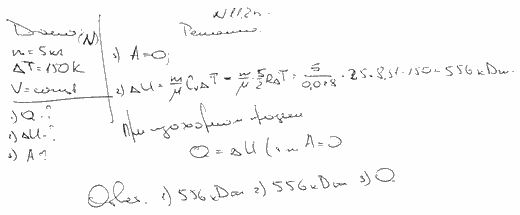 N 11.2п.
Дано: (N₂)
Решение.
m = 5кг
ΔT = 150К
V = const
1) Q - ?
2) ΔU - ?
3) A - ?
3) A = 0;
2) ΔU = m/μ Cᵥ ΔT = m/μ · 5/2 RΔT = 5/0,028 · 2,5 · 8,31 · 150 = 556 кДж.
При изохорном процессе
Q = ΔU (т.к. A = 0
Ответ. 1) 556 кДж 2) 556 кДж 3) 0.